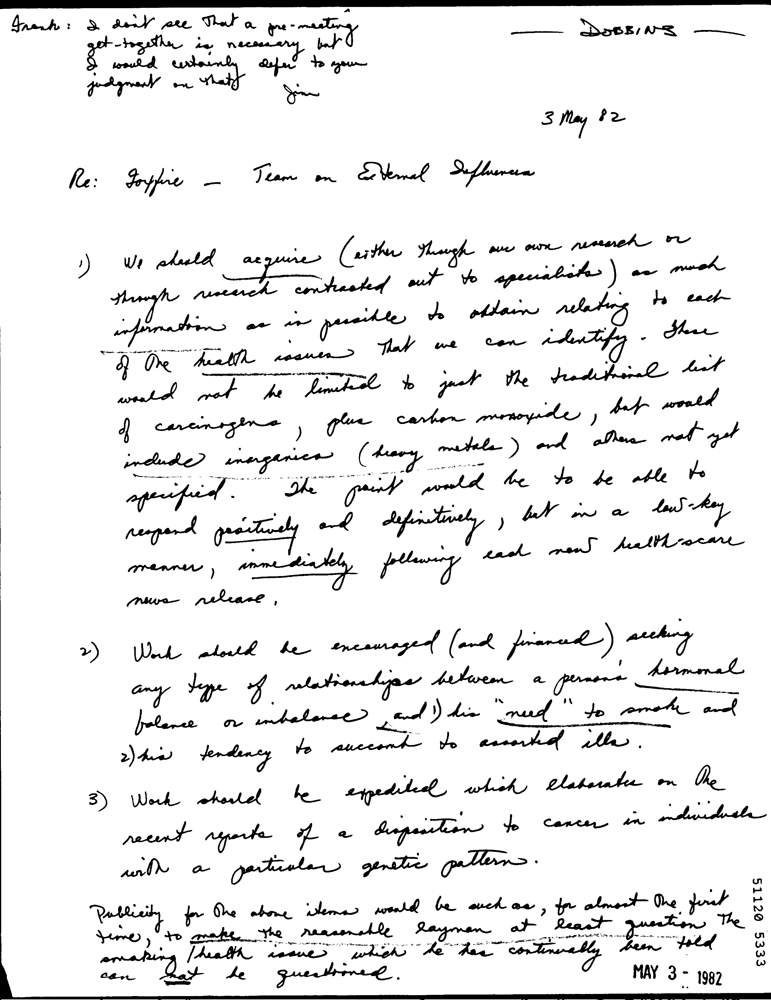 Frank: I don't see that a pre-meeting
get-together is necessary but
I would certainly defer to your
judgment on that
Jim
— DOBBINS —
3 May 82
Re: Foxfire — Team on External Influences
1) We should acquire (either through our own research or
through research contracted out to specialists) as much
information as is possible to obtain relating to each
of the health issues that we can identify. These
would not be limited to just the traditional list
of carcinogens, plus carbon monoxide, but would
include inorganics (heavy metals) and others not yet
specified. The point would be to be able to
respond positively and definitively, but in a low-key
manner, immediately following each new health-scare
news release.
2) Work should be encouraged (and financed) seeking
any type of relationships between a person's hormonal
balance or imbalance, and 1) his "need" to smoke and
2) his tendency to succomb to assorted ills.
3) Work should be expedited which elaborates on the
recent reports of a disposition to cancer in individuals
with a particular genetic pattern.
Publicity for the above items would be such as, for almost the first
time, to make the reasonable layman at least question the
smoking/health issue which he has continually been told
can not be questioned.
MAY 3 - 1982
51120 5333